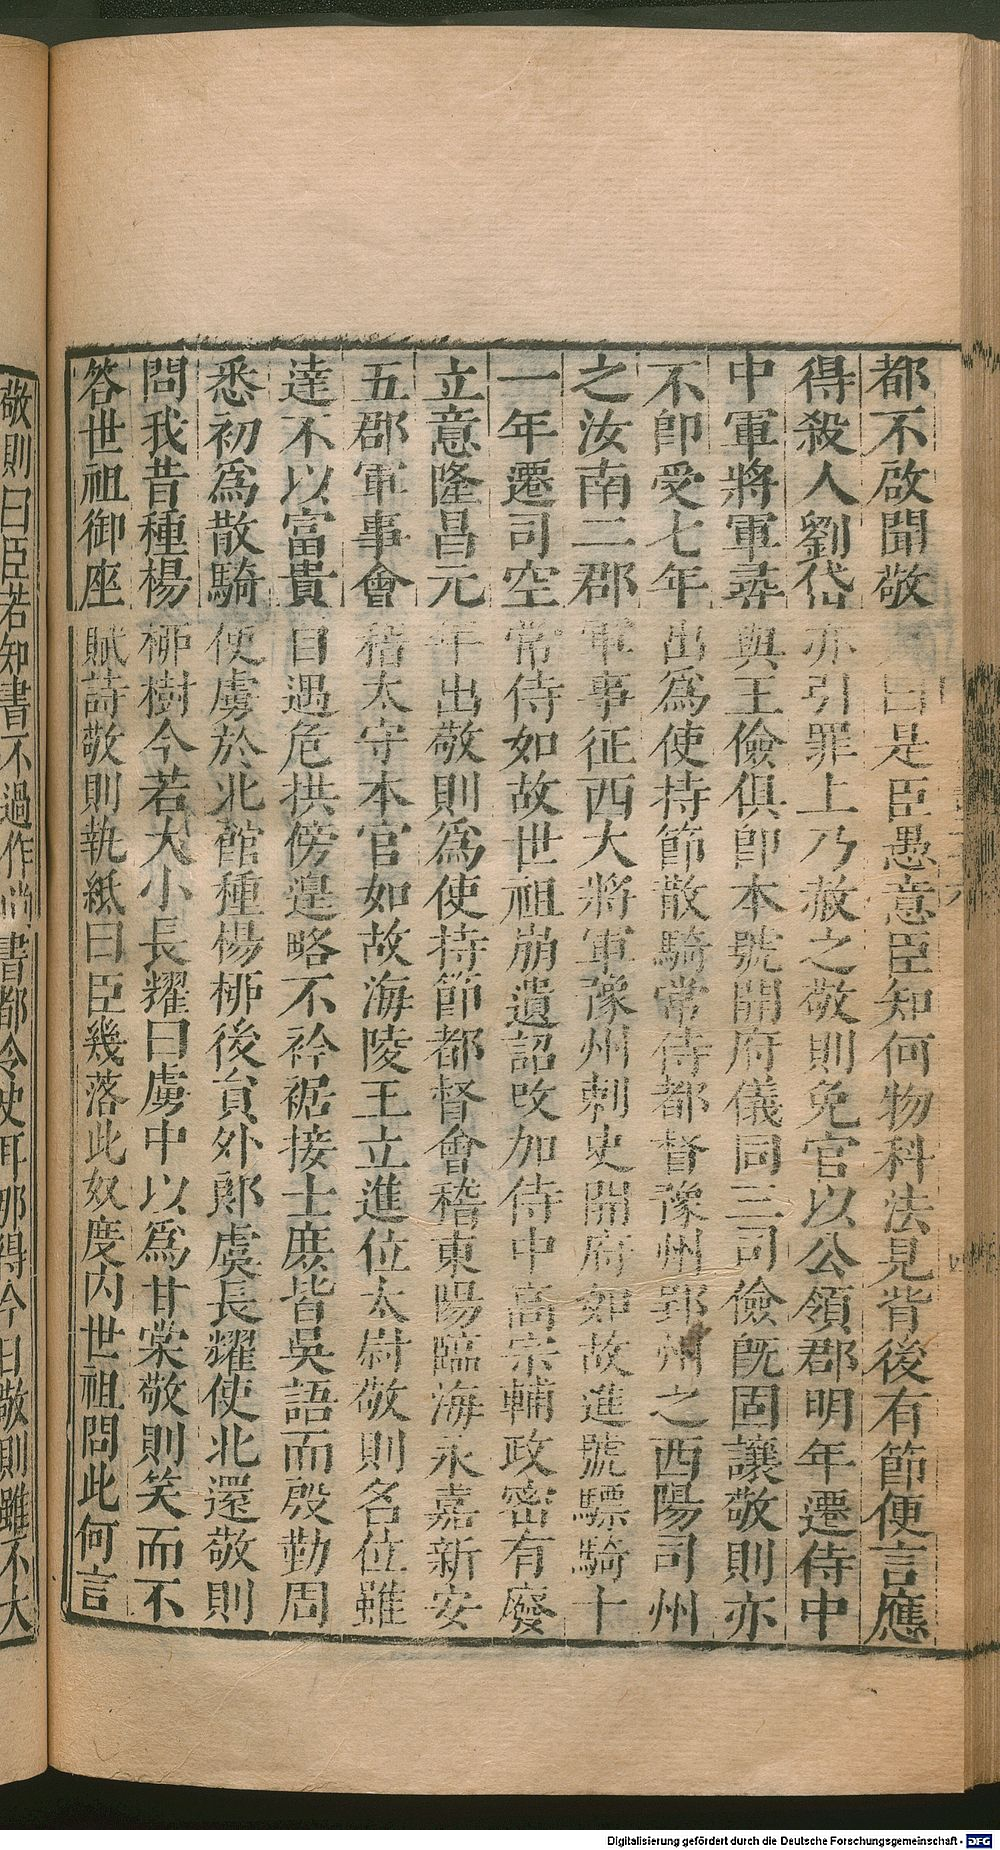 都不啟聞敬曰是臣愚意臣知何物科法見背後有節便言應
得殺人劉岱亦引罪上乃赦之敬則免官以公領郡明年遷侍中
中軍將軍尋與王儉俱卽本號開府儀同三司儉旣固讓敬則亦
不卽受七年出爲使持節散騎常侍都督豫州郢州之西陽司州
之汝南二郡軍事征西大將軍豫州刺史開府如故進號驃騎十
一年遷司空常侍如故世祖崩遺詔改加侍中高宗輔政密有廢
立意隆昌元年出敬則爲使持節都督會稽東陽臨海永嘉新安
五郡軍事會稽太守本官如故海陵王立進位太尉敬則名位雖
達不以富貴自遇危拱傍遑略不衿裾接士庶皆吳語而殷勤周
悉初爲散騎使虜於北館種楊栁後貟外郎虞長耀使北還敬則
問我昔種楊栁樹今若大小長耀曰虜中以爲甘棠敬則笑而不
答世祖御座賦詩敬則執紙曰臣幾落此奴度內世祖問此何言
敬則曰臣若知書不過作尚書都令史耳那得今日敬則雖不大
Digitalisierung gefördert durch die Deutsche Forschungsgemeinschaft - DFG